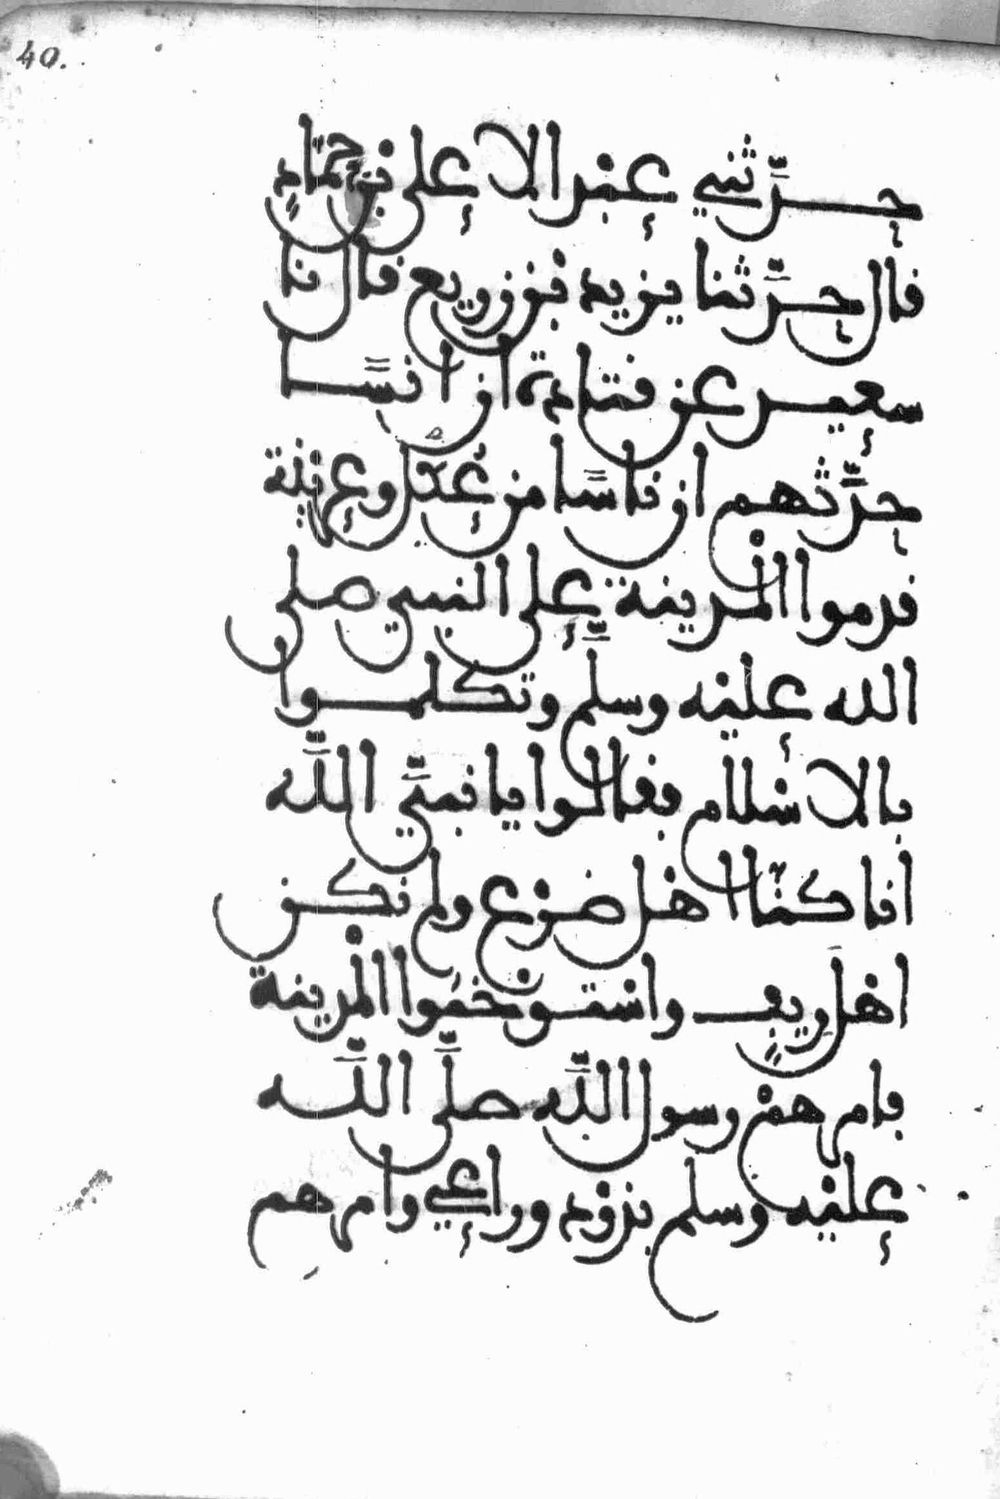 40.
حدثني عبد الاعلى بن حمّادٍ
قال حدّثنا يزيد بن زريع قال نا
سعيد عن قتادة ان انسًا
حدّثهم ان ناسًا من عُكل وعرينة
قدموا المدينة على النبي صلى
الله عليه وسلّم وتكلموا
بالاسلام فقالوا يا نبيّ اللّه
انا كنّا اهل ضرع ولم نكن
اهل ريفٍ واستوخموا المدينة
فامر لهم رسول اللّه صلّى اللّه
عليه وسلم بذود وراعي وامرهم